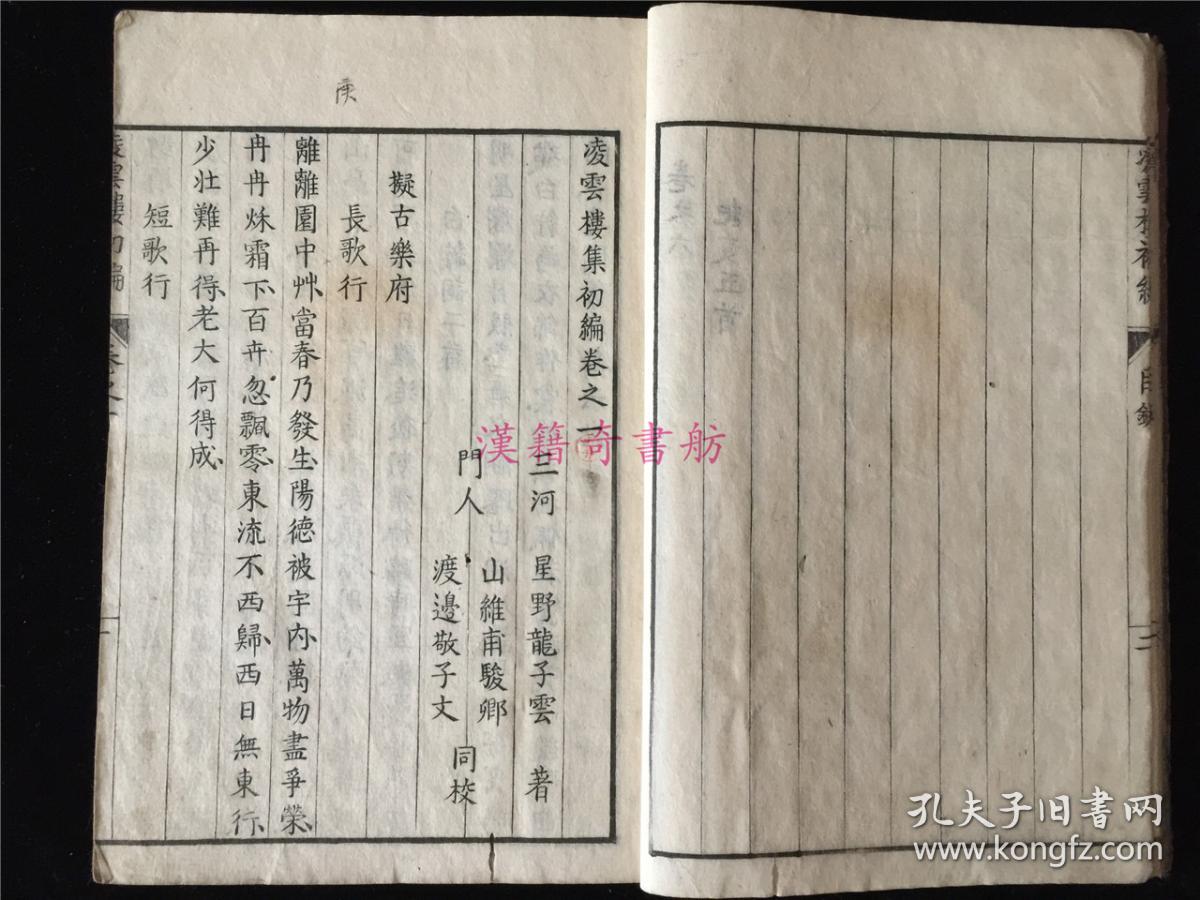 凌雲樓集初編卷之一
三河 星野龍子雲 著
門人 山維甫駿卿
渡邊敬子文 同校
擬古樂府
長歌行
離離園中艸當春乃發生陽德被宇內萬物盡爭榮
冉冉秌霜下百卉忽飄零東流不西歸西日無東行
少壯難再得老大何得成
短歌行
庚
目錄
二
漢籍奇書舫
孔夫子旧书网
www.kongfz.com